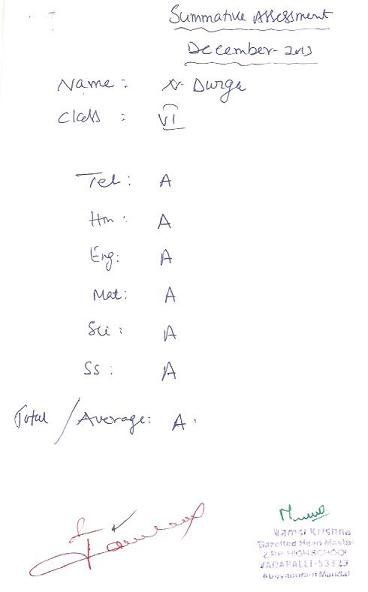 Summative Assessment
December-2013
Name: N Durga
Class : VI
Tel: A
Hn: A
Eng: A
Mat: A
Sci: A
SS: A
Total / Average: A.
Vamsi Krishna
Gazetted Head Master
Z.P.P. HIGH SCHOOL